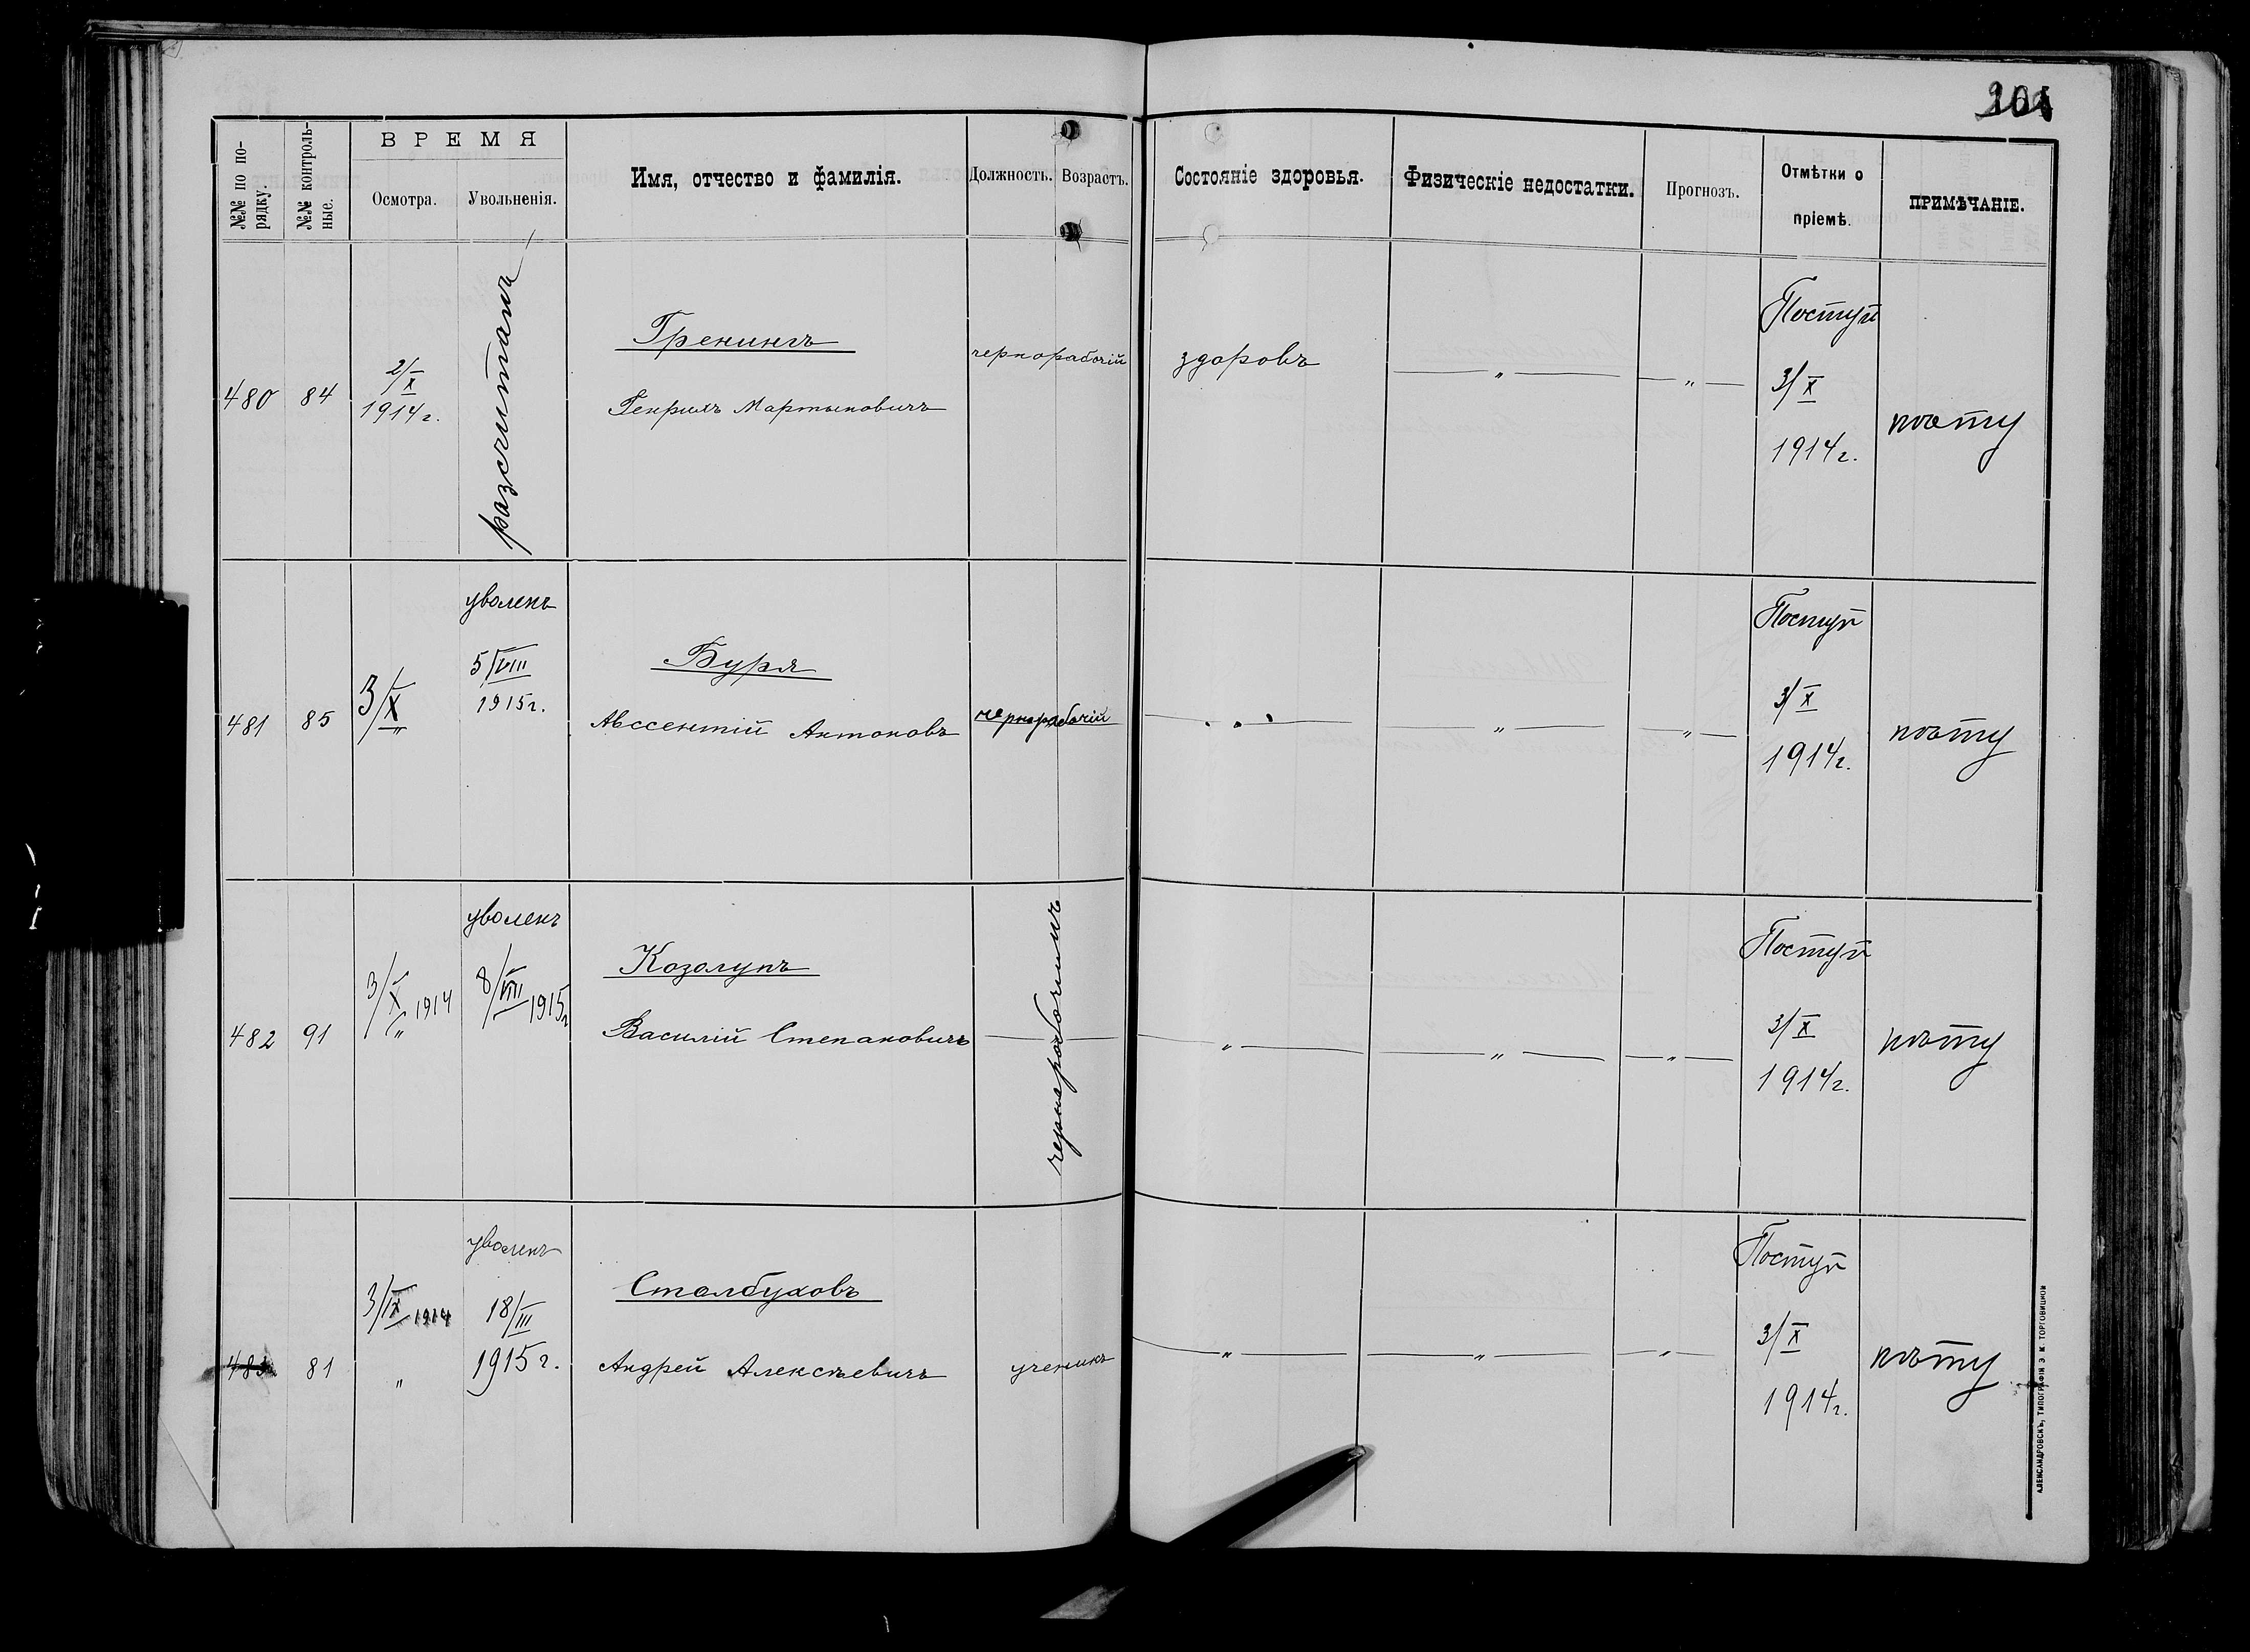 В Р Е М Я
№№ по по-
рядку.
№№ контроль-
ные.
Осмотра.
Увольненія.
Имя, отчество и фамилія.
Должность.
Возрастъ.
Состояніе здоровья.
Физическіе недостатки.
Прогнозъ.
Отмѣтки о
пріемѣ.
ПРИМѢЧАНІЕ.
480
84
2/X
1914 г.
разсчитанъ
Гренингъ
Генрихъ Мартыновичъ
чернорабочій
здоровъ
— „ —
— „ —
Поступ
3/X
1914 г.
481
85
3/X
„
уволенъ
5/VIII
1915 г.
Буря
Авссентій Антоновъ
чернорабочій
— „ —
— „ —
— „ —
Поступ
3/X
1914 г.
482
91
3/X 1914
„
уволенъ
8/VIII 1915 г
Козолупъ
Василій Степановичъ
чернорабочимъ
— „ —
— „ —
— „ —
Поступ
3/X
1914 г.
81
3/IX 1914
„
уволенъ
18/III
1915 г.
Столбуховъ
Андрей Алексѣевичъ
ученикъ
— „ —
— „ —
— „ —
Поступ
3/X
1914 г.
АЛЕКСАНДРОВСКЪ, ТИПОГРАФІЯ Э. М. ТОРГОВИЦКОЙ